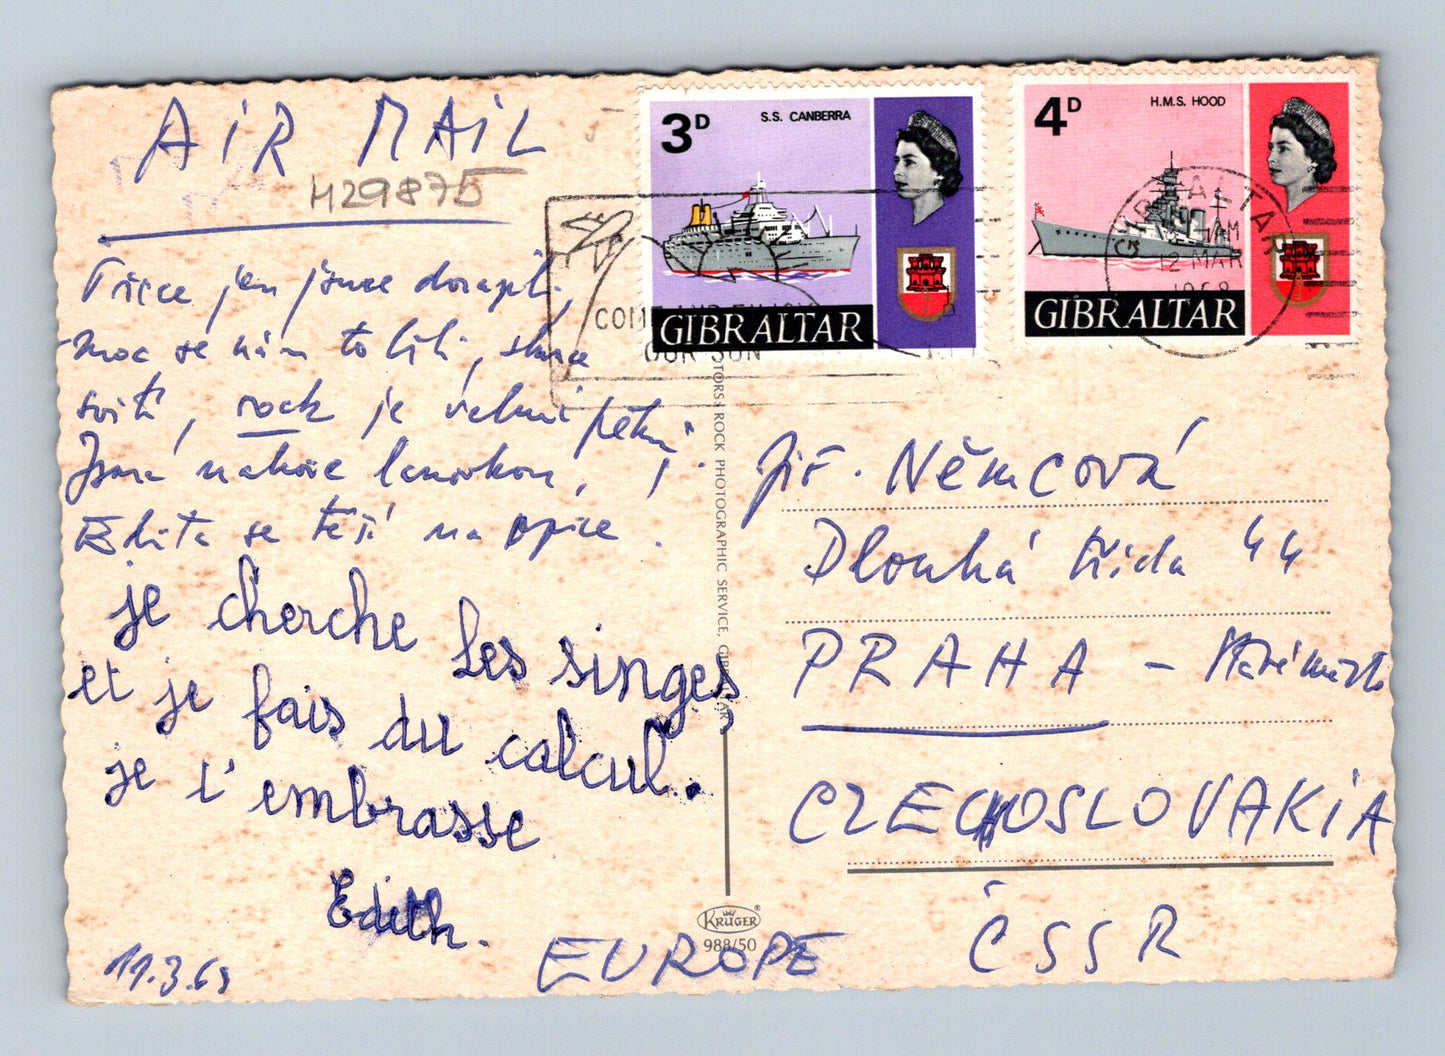 AiR MAiL
H29875
jen jsme dorazili,
moc se nám to líbí, slunce
svítí, rock je velmi pěkný.
Jsme nahoře lanovkou,
Edita se těší na opice.
je cherche les singes
et je fais du calcul.
je t'embrasse
Edith.
11.3.69
3D
S.S. CANBERRA
GIBRALTAR
4D
H.M.S. HOOD
GIBRALTAR
COME AND ENJOY
OUR SUN
GIBRALTAR
AM
12 MAR
ROCK PHOTOGRAPHIC SERVICE,
Jiř. Němcová
Dlouhá třída 44
PRAHA – Staré město
CZECHOSLOVAKiA
ČSSR
EUROPE
KRÜGER®
988/50